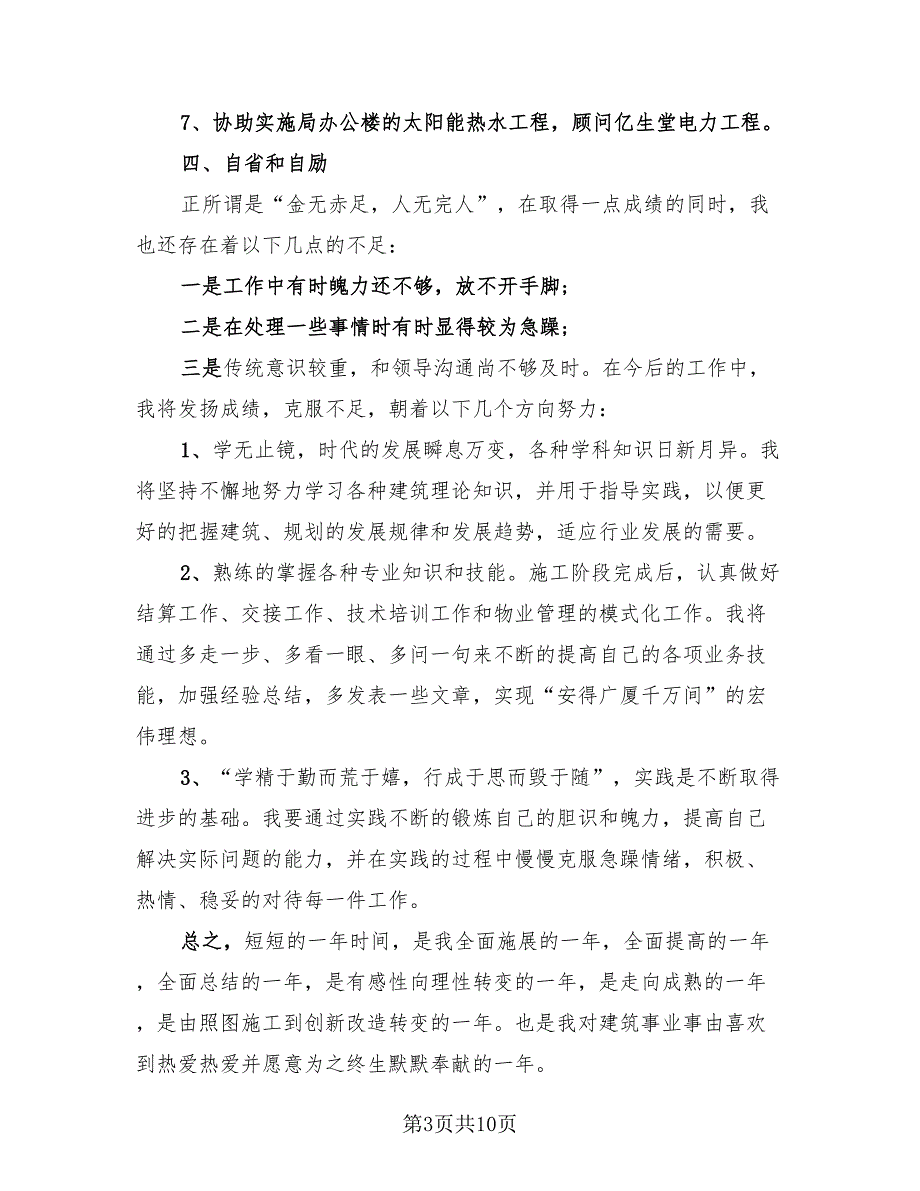 7、协助实施局办公楼的太阳能热水工程，顾问亿生堂电力工程。
四、自省和自励
正所谓是“金无赤足，人无完人”，在取得一点成绩的同时，我
也还存在着以下几点的不足：
一是工作中有时魄力还不够，放不开手脚；
二是在处理一些事情时有时显得较为急躁；
三是传统意识较重，和领导沟通尚不够及时。在今后的工作中，
我将发扬成绩，克服不足，朝着以下几个方向努力：
1、学无止镜，时代的发展瞬息万变，各种学科知识日新月异。我
将坚持不懈地努力学习各种建筑理论知识，并用于指导实践，以便更
好的把握建筑、规划的发展规律和发展趋势，适应行业发展的需要。
2、熟练的掌握各种专业知识和技能。施工阶段完成后，认真做好
结算工作、交接工作、技术培训工作和物业管理的模式化工作。我将
通过多走一步、多看一眼、多问一句来不断的提高自己的各项业务技
能，加强经验总结，多发表一些文章，实现“安得广厦千万间”的宏
伟理想。
3、“学精于勤而荒于嬉，行成于思而毁于随”，实践是不断取得
进步的基础。我要通过实践不断的锻炼自己的胆识和魄力，提高自己
解决实际问题的能力，并在实践的过程中慢慢克服急躁情绪，积极、
热情、稳妥的对待每一件工作。
总之，短短的一年时间，是我全面施展的一年，全面提高的一年
，全面总结的一年，是有感性向理性转变的一年，是走向成熟的一年
，是由照图施工到创新改造转变的一年。也是我对建筑事业事由喜欢
到热爱热爱并愿意为之终生默默奉献的一年。
第3页共10页